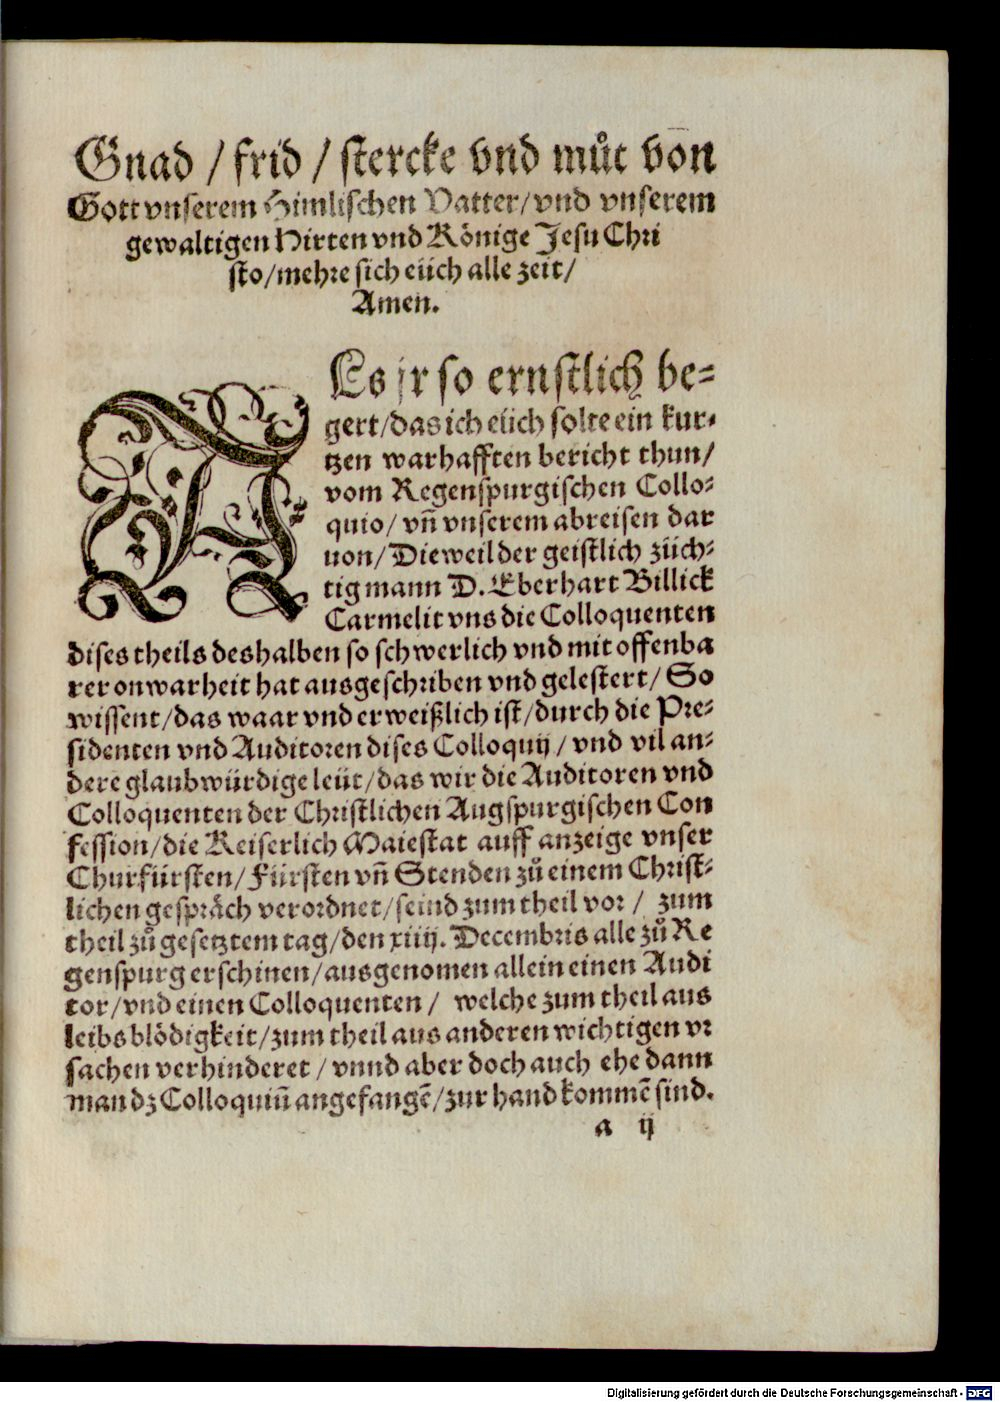 Gnad / frid / stercke vnd můt von
Gott vnserem Himlischen Vatter/ vnd vnserem
gewaltigen Hirten vnd Könige Jesu Chri
sto/ mehre sich eüch alle zeit/
Amen.
ALs jr so ernstlich be-
gert/ das ich eüch solte ein kur-
tzen warhafften bericht thun/
vom Regenspurgischen Collo-
quio/ vñ vnserem abreisen dar
uon/ Dieweil der geistlich züch-
tig mann D. Eberhart Billick
Carmelit vns die Colloquenten
dises theils deshalben so schwerlich vnd mit offenba
rer onwarheit hat ausgeschriben vnd gelestert/ So
wissent/ das waar vnd erweißlich ist/ durch die Pre-
sidenten vnd Auditoren dises Colloquij/ vnd vil an-
dere glaubwürdige leüt/ das wir die Auditoren vnd
Colloquenten der Christlichen Augspurgischen Con
fession/ die Keiserlich Maiestat auff anzeige vnser
Churfürsten/ Fürsten vñ Stenden zů einem Christ-
lichen gespräch verordnet/ seind zum theil vor/ zum
theil zů gesetztem tag/ den xiiij. Decembris alle zů Re
genspurg erschinen/ ausgenomen allein einen Audi
tor/ vnd einen Colloquenten/ welche zum theil aus
leibs blödigkeit/ zum theil aus anderen wichtigen vr
sachen verhinderet/ vnnd aber doch auch ehe dann
man dz Colloquiũ angefangẽ/ zur hand kommẽ sind.
a ij
Digitalisierung gefördert durch die Deutsche Forschungsgemeinschaft - DFG